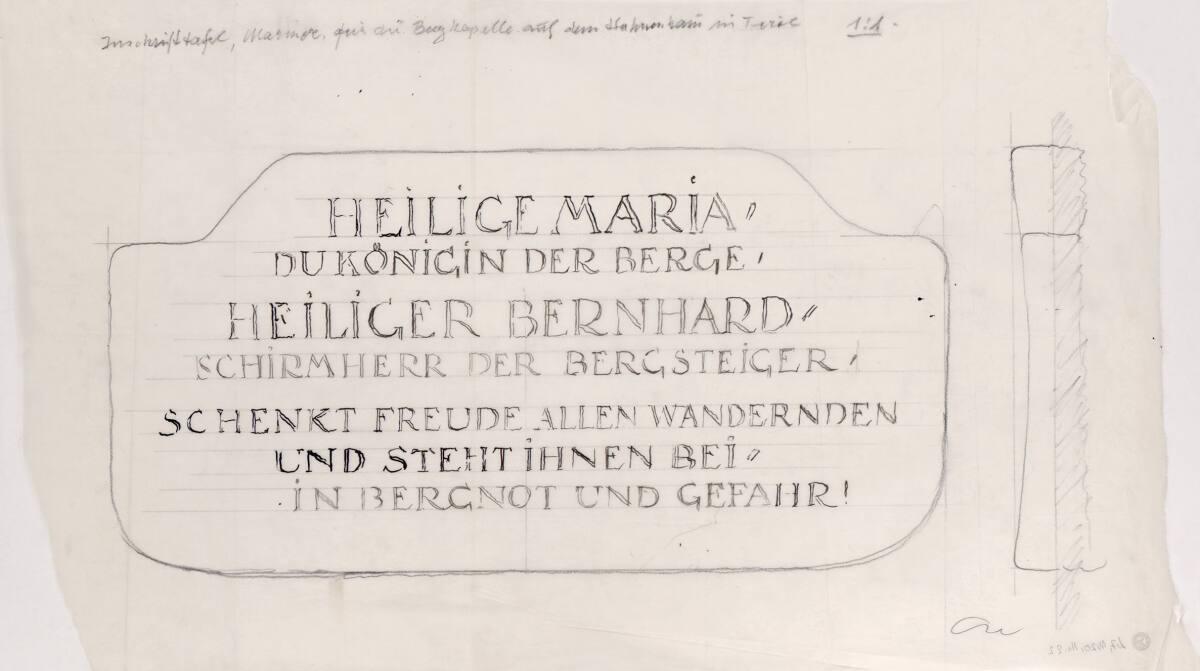 Inschrifttafel, Marmor, für die Bergkapelle auf dem Hahnenkam in Tirol 1:1.
HEILIGE MARIA,,
DU KÖNIGIN DER BERGE,
HEILIGER BERNHARD,,
SCHIRMHERR DER BERGSTEIGER,
SCHENKT FREUDE ALLEN WANDERNDEN
UND STEHT IHNEN BEI,,
IN BERGNOT UND GEFAHR!